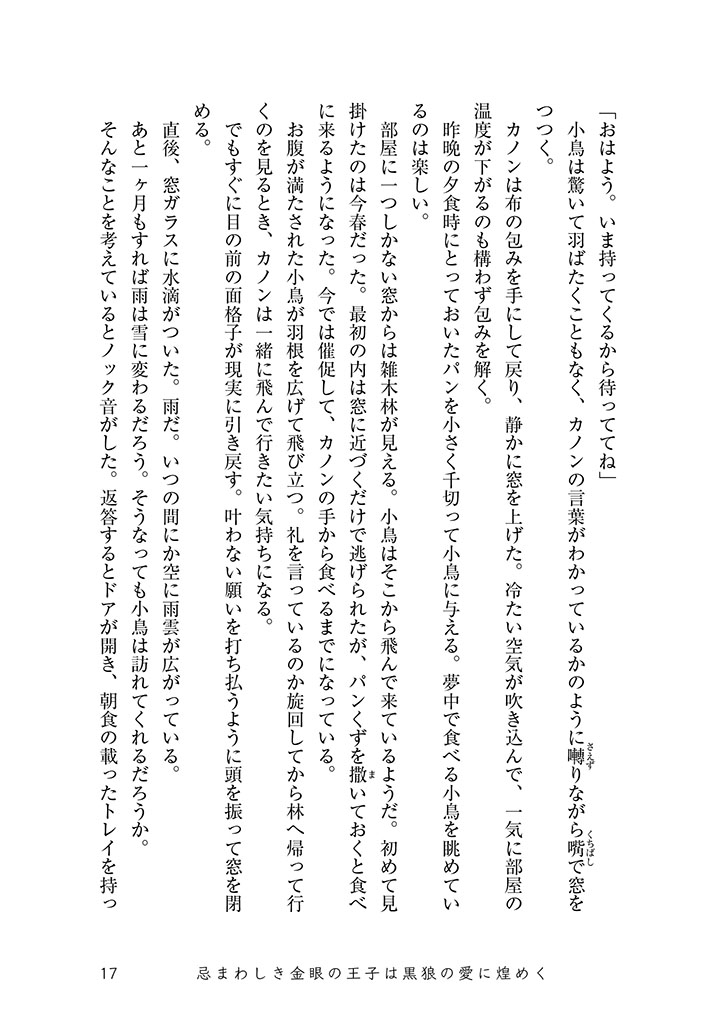 「おはよう。いま持ってくるから待っててね」
　小鳥は驚いて羽ばたくこともなく、カノンの言葉がわかっているかのように囀りながら嘴で窓を
つつく。
　カノンは布の包みを手にして戻り、静かに窓を上げた。冷たい空気が吹き込んで、一気に部屋の
温度が下がるのも構わず包みを解く。
　昨晩の夕食時にとっておいたパンを小さく千切って小鳥に与える。夢中で食べる小鳥を眺めてい
るのは楽しい。
　部屋に一つしかない窓からは雑木林が見える。小鳥はそこから飛んで来ているようだ。初めて見
掛けたのは今春だった。最初の内は窓に近づくだけで逃げられたが、パンくずを撒いておくと食べ
に来るようになった。今では催促して、カノンの手から食べるまでになっている。
　お腹が満たされた小鳥が羽根を広げて飛び立つ。礼を言っているのか旋回してから林へ帰って行
くのを見るとき、カノンは一緒に飛んで行きたい気持ちになる。
　でもすぐに目の前の面格子が現実に引き戻す。叶わない願いを打ち払うように頭を振って窓を閉
める。
　直後、窓ガラスに水滴がついた。雨だ。いつの間にか空に雨雲が広がっている。
　あと一ヶ月もすれば雨は雪に変わるだろう。そうなっても小鳥は訪れてくれるだろうか。
　そんなことを考えているとノック音がした。返答するとドアが開き、朝食の載ったトレイを持っ
さえず
くちばし
ま
17
忌まわしき金眼の王子は黒狼の愛に煌めく